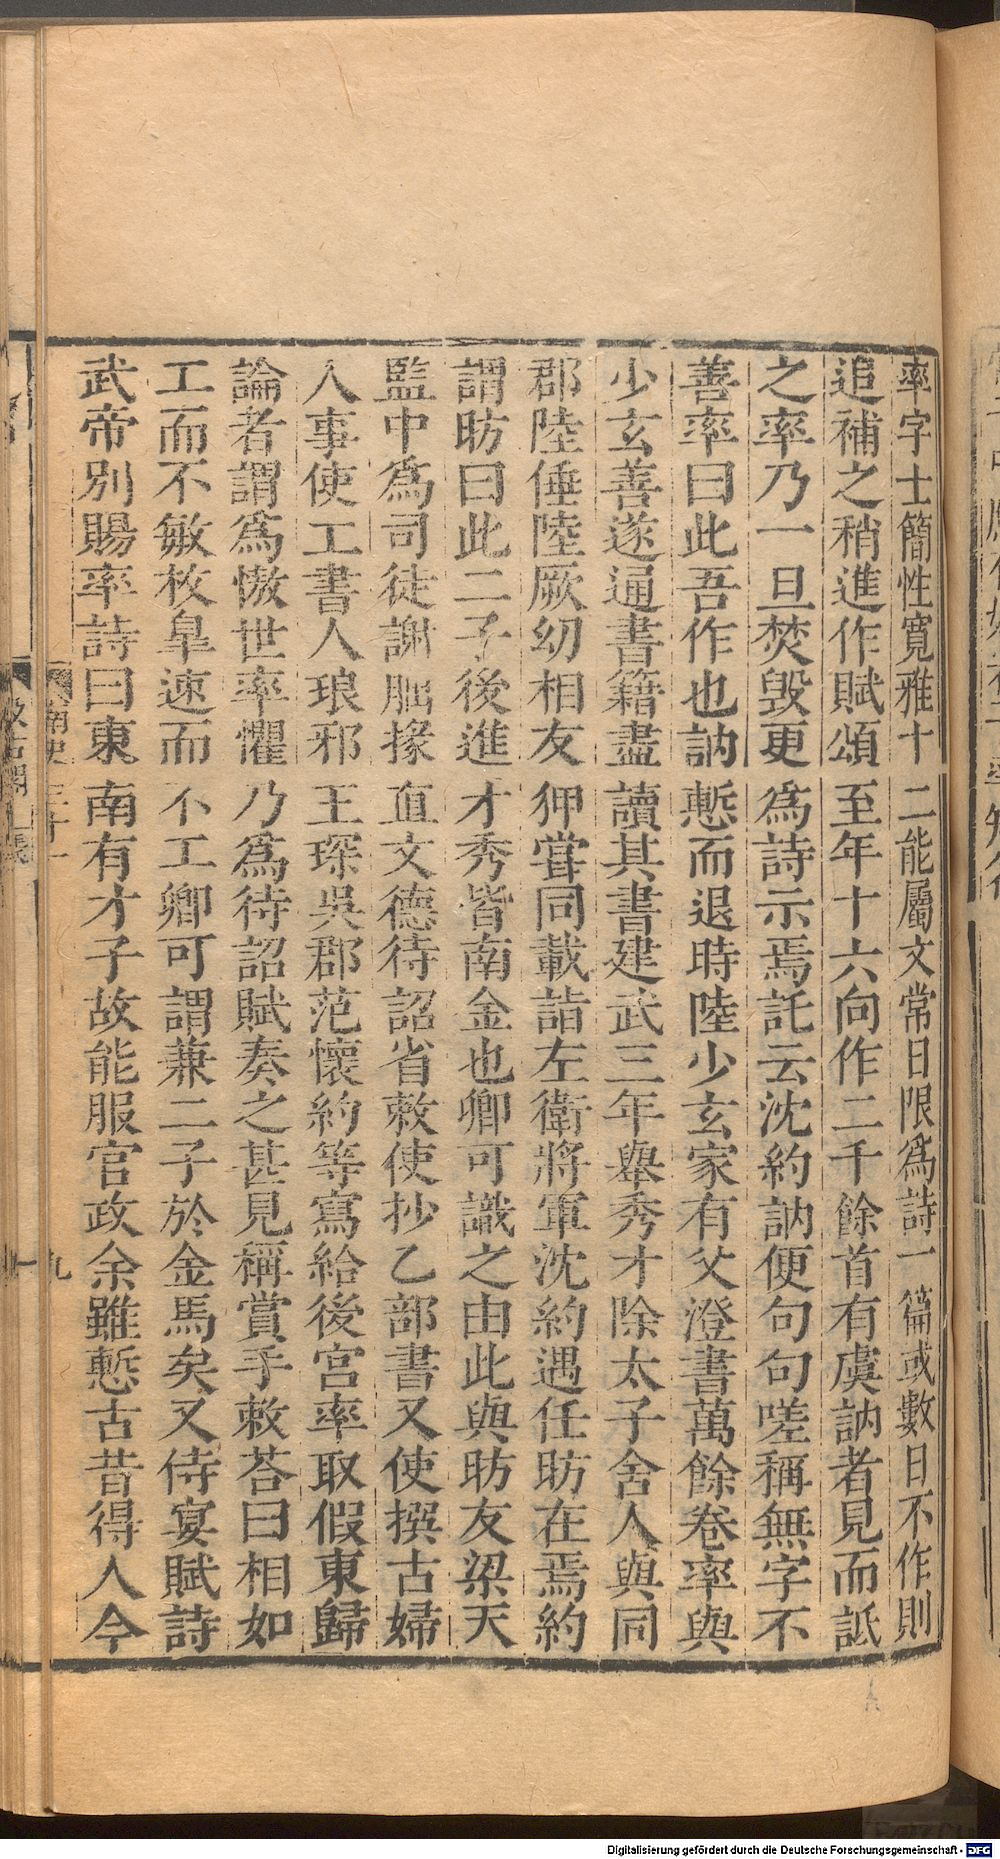 率字士簡性寬雅十二能屬文常日限爲詩一篇或數日不作則
追補之稍進作賦頌至年十六向作二千餘首有虞訥者見而詆
之率乃一旦焚毀更爲詩示焉託云沈約訥便句句嗟稱無字不
善率曰此吾作也訥慙而退時陸少玄家有父澄書萬餘卷率與
少玄善遂通書籍盡讀其書建武三年舉秀才除太子舍人與同
郡陸倕陸厥幼相友狎嘗同載詣左衛將軍沈約遇任昉在焉約
謂昉曰此二子後進才秀皆南金也卿可識之由此與昉友梁天
監中爲司徒謝朏掾直文德待詔省敕使抄乙部書又使撰古婦
人事使工書人琅邪王琛吳郡范懷約等寫給後宮率取假東歸
論者謂爲慠世率懼乃爲待詔賦奏之甚見稱賞手敕荅曰相如
工而不敏枚臯速而不工卿可謂兼二子於金馬矣又侍宴賦詩
武帝別賜率詩曰東南有才子故能服官政余雖慙古昔得人今
南史三十一
九
汲古閣
Digitalisierung gefördert durch die Deutsche Forschungsgemeinschaft - DFG